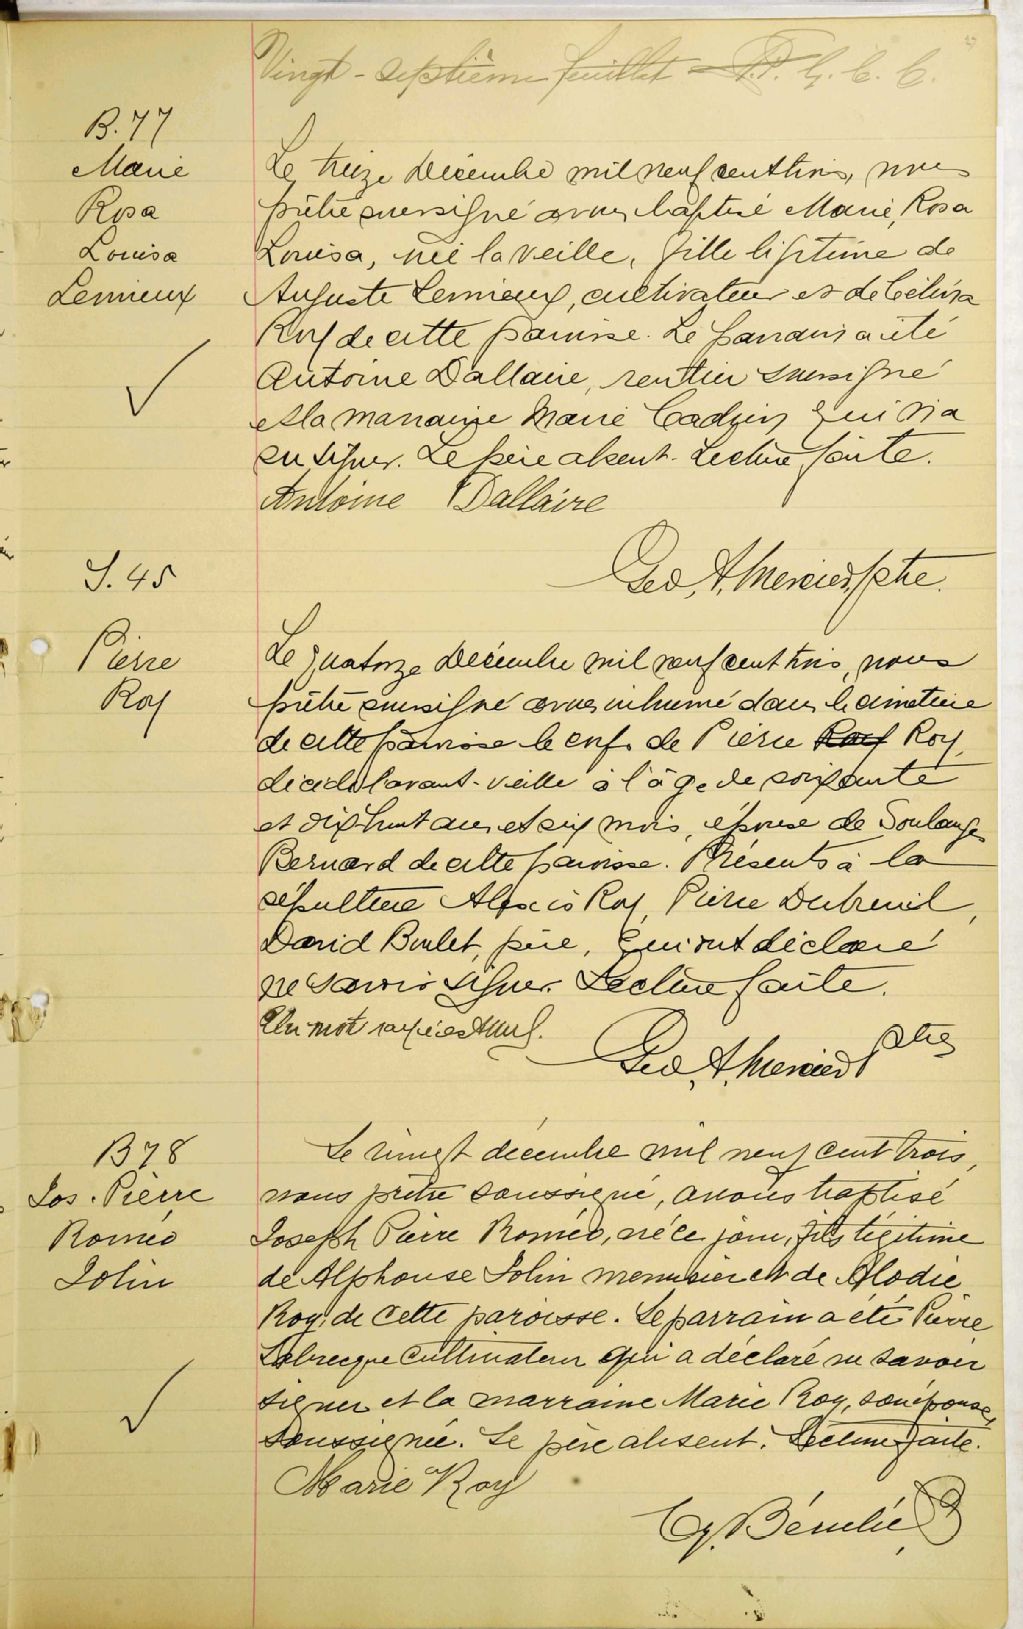 Vingt-septième feuillet P. G. C. C.
B.77
Marie
Rosa
Louisa
Lemieux
Le treize Décembre mil neuf cent trois, nous
prêtre soussigné avons baptisé Marie, Rosa
Louisa, née la veille, fille légitime de
Auguste Lemieux, cultivateur et de Célina
Roy de cette paroisse. Le parrain a été
Antoine Dallaire, rentier soussigné
et la marraine Marie Cadrin qui n'a
su signer. Le père absent. Lecture faite.
Antoine Dallaire
Geo. A. Mercier, ptre.
S. 45
Pierre
Roy
Le quatorze Décembre mil neuf cent trois, nous
prêtre soussigné avons inhumé dans le cimetière
de cette paroisse le corps de Pierre Roy Roy,
décédé l'avant-veille à l'âge de soixante
et dix huit ans et six mois, époux de Soulanges
Bernard de cette paroisse. Présents à la
sépulture Alexis Roy, Pierre Dutreuil,
David Boulet, père, qui ont déclaré
ne savoir signer. Lecture faite.
Un mot rayé est nul.
Geo. A. Mercier ptre
B78
Jos. Pierre
Roméo
Jolin
Le vingt décembre mil neuf cent trois,
nous prêtre soussigné, avons baptisé
Joseph Pierre Roméo, né ce jour, fils légitime
de Alphonse Jolin menuisier et de Elodie
Roy de cette paroisse. Le parrain a été Pierre
Labrecque cultivateur qui a déclaré ne savoir
signer et la marraine Marie Roy, son épouse,
soussignée. Le père absent. Lecture faite.
Marie Roy